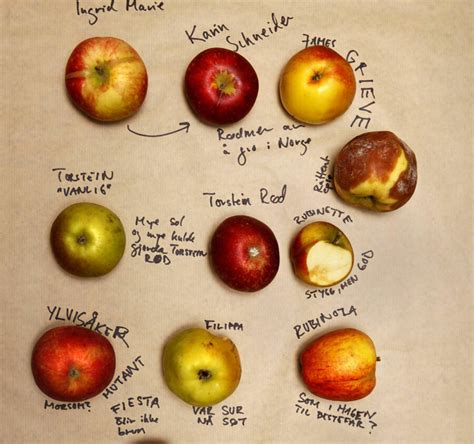 Ingrid Marie
Karin
Schneider
JAMES
GRIEVE
Rødmer av
å gro i Norge
Råttent
eple
TORSTEIN
"VANLIG"
Mye sol
og mye kulde
gjorde Torstein
RØD
Torstein Rød
RUBINETTE
STYGG, MEN GOD
YLVISÅKER
MUTANT
MORSOM?
FIESTA
Blir ikke
brun
FILIPPA
VAR SUR
NÅ SØT
RUBINOLA
SOM I HAGEN
TIL BESTEFAR?